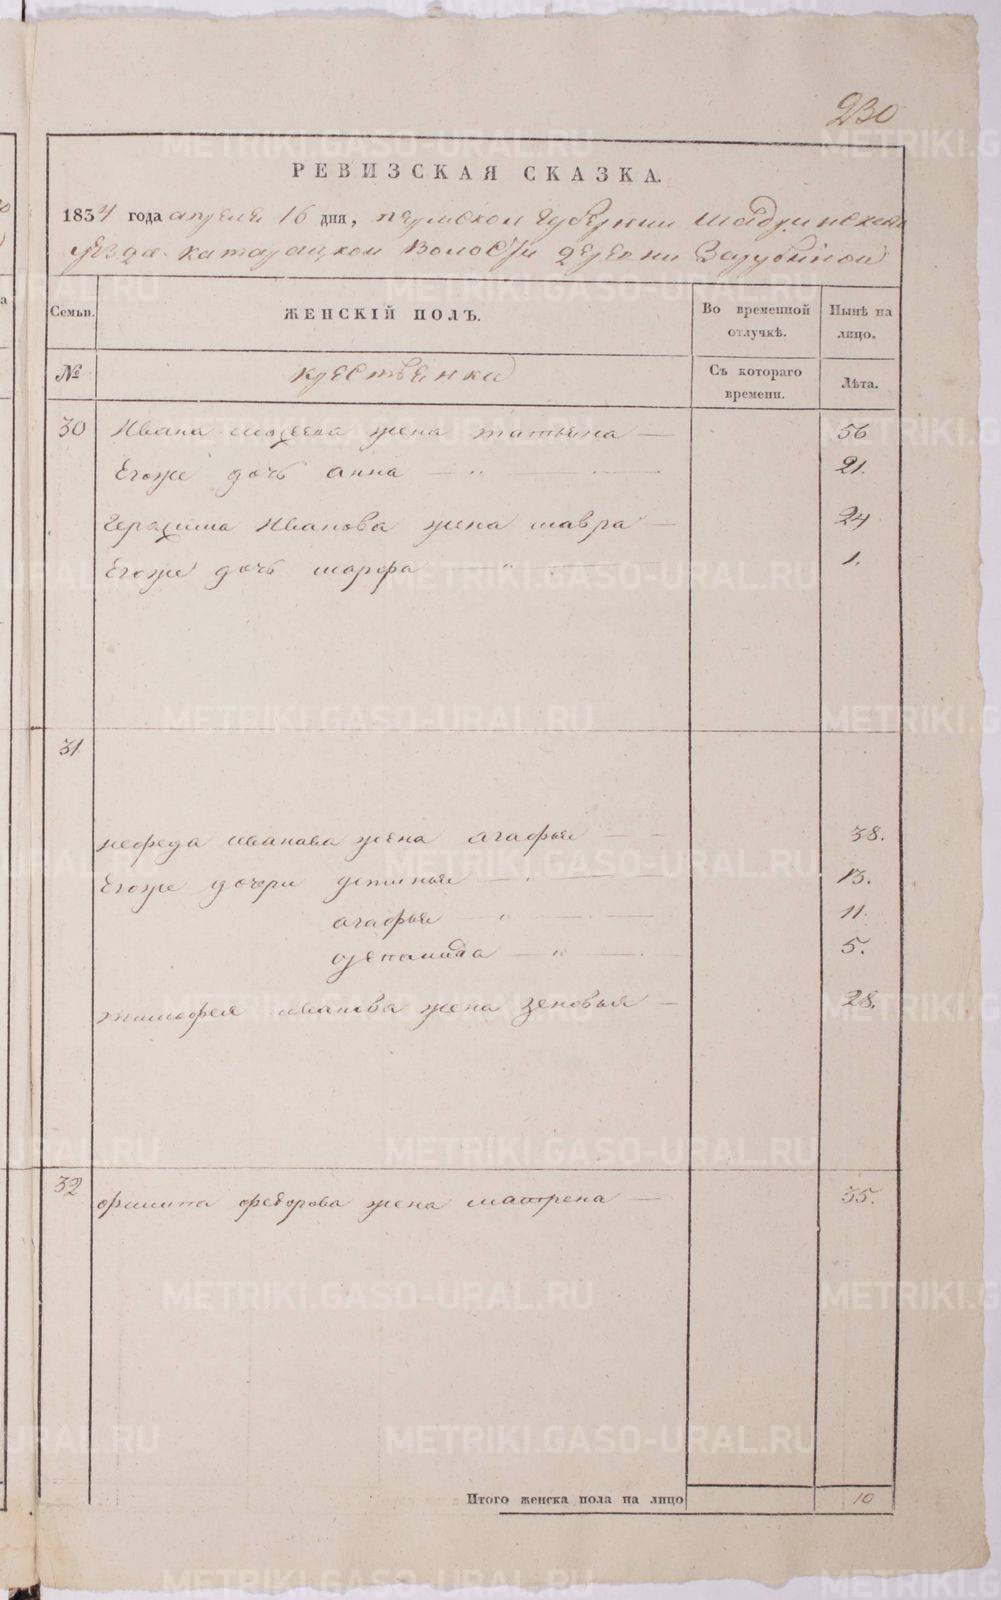 230
РЕВИЗСКАЯ СКАЗКА.
1834 года апреля 16 дня, пермской губернии шадринскаго
уезда катайцкой волости деревни Зарубиной
Семьи. ЖЕНСКІЙ ПОЛЪ. Во временной отлучкѣ. Нынѣ на лицо.
№ крестьянки Съ котораго времени. Лѣта.
30 Ивана жена татьяна 56
Егоже дочь анна 21.
Герасима Иванова жена мавра 24
Егоже дочь марфа 1.
31
нефеда иванова жена агафья 38.
Егоже дочери устинья 13.
агафья 11.
степанида 5.
тимофея иванова жена зеновья 28.
32 филипа федорова жена матрена 35.
Итого женска пола на лицо 10
METRIKI.GASO-URAL.RU